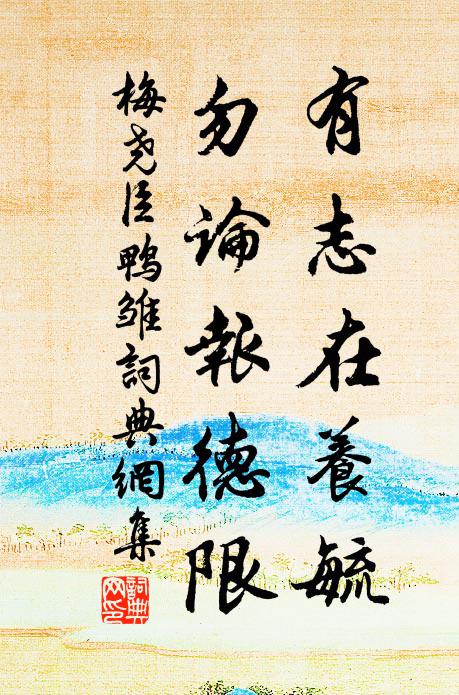 有志在養毓
勿論報德限
梅堯臣鴨雛詞典網集
詞典網印